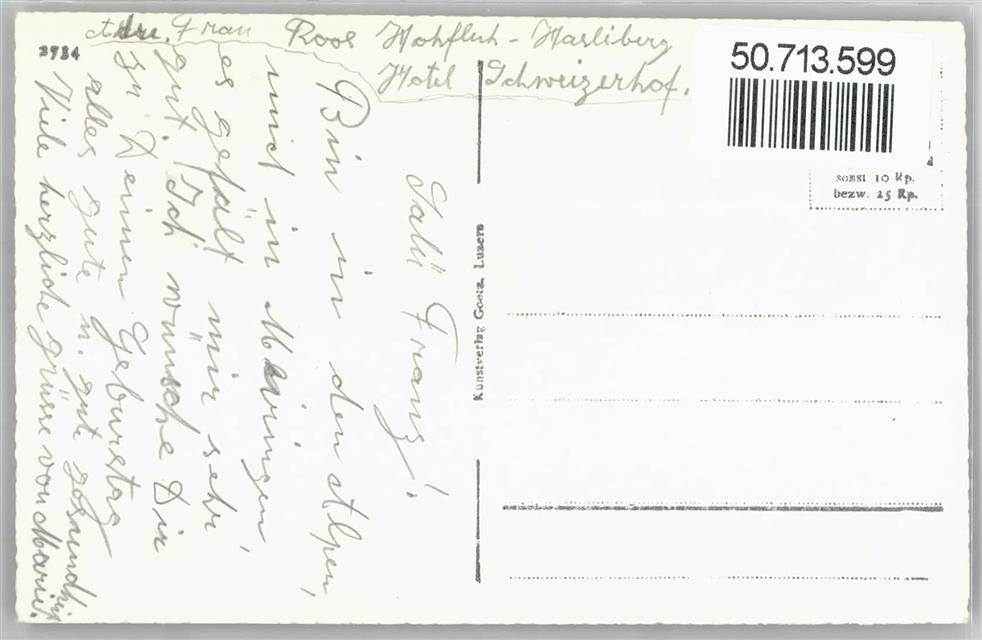 Adr. Frau Roos Hohfluh - Hasliberg
Hotel Schweizerhof.
Salü Franz!
Bin in den Alpen,
und in Meiringen,
es gefält mir sehr
gut. Ich wünsche Dir
zu Deinen Geburstag
alles gute u. gute gesundheit
Viele herzliche grüsse von
3984
50.713.599
sonst 10 Rp.
bezw. 25 Rp.
Kunstverlag Goetz, Luzern